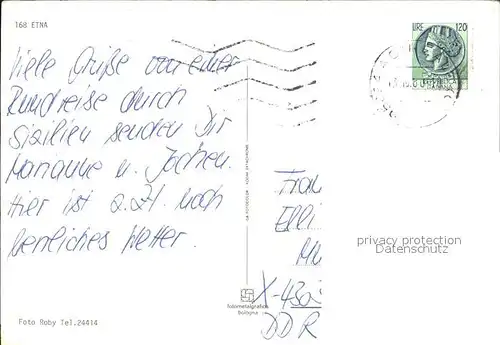 168 ETNA
LIRE 120
Viele Grüße von einer
Rundreise durch
Sizilien senden Dir
Marianne u. Jochen.
Hier ist z.Zt. noch
herrliches Wetter.
Foto Roby Tel.24414
Bologna
Elli
privacy protection
Datenschutz
DDR